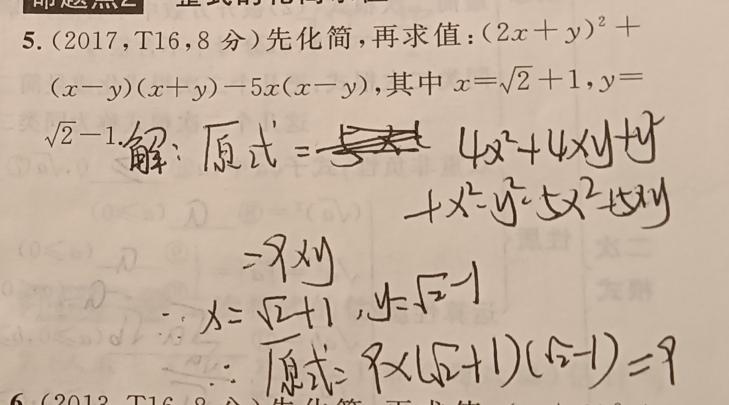 5.(2017,T16,8分)先化简,再求值:(2x+y)²+
(x-y)(x+y)-5x(x-y),其中x=√2+1,y=
√2-1.
解:原式= 4x²+4xy+y²
+x²-y²-5x²+5xy
=9xy
∵x=√2+1,y=√2-1
∴原式=9×(√2+1)(√2-1)=9